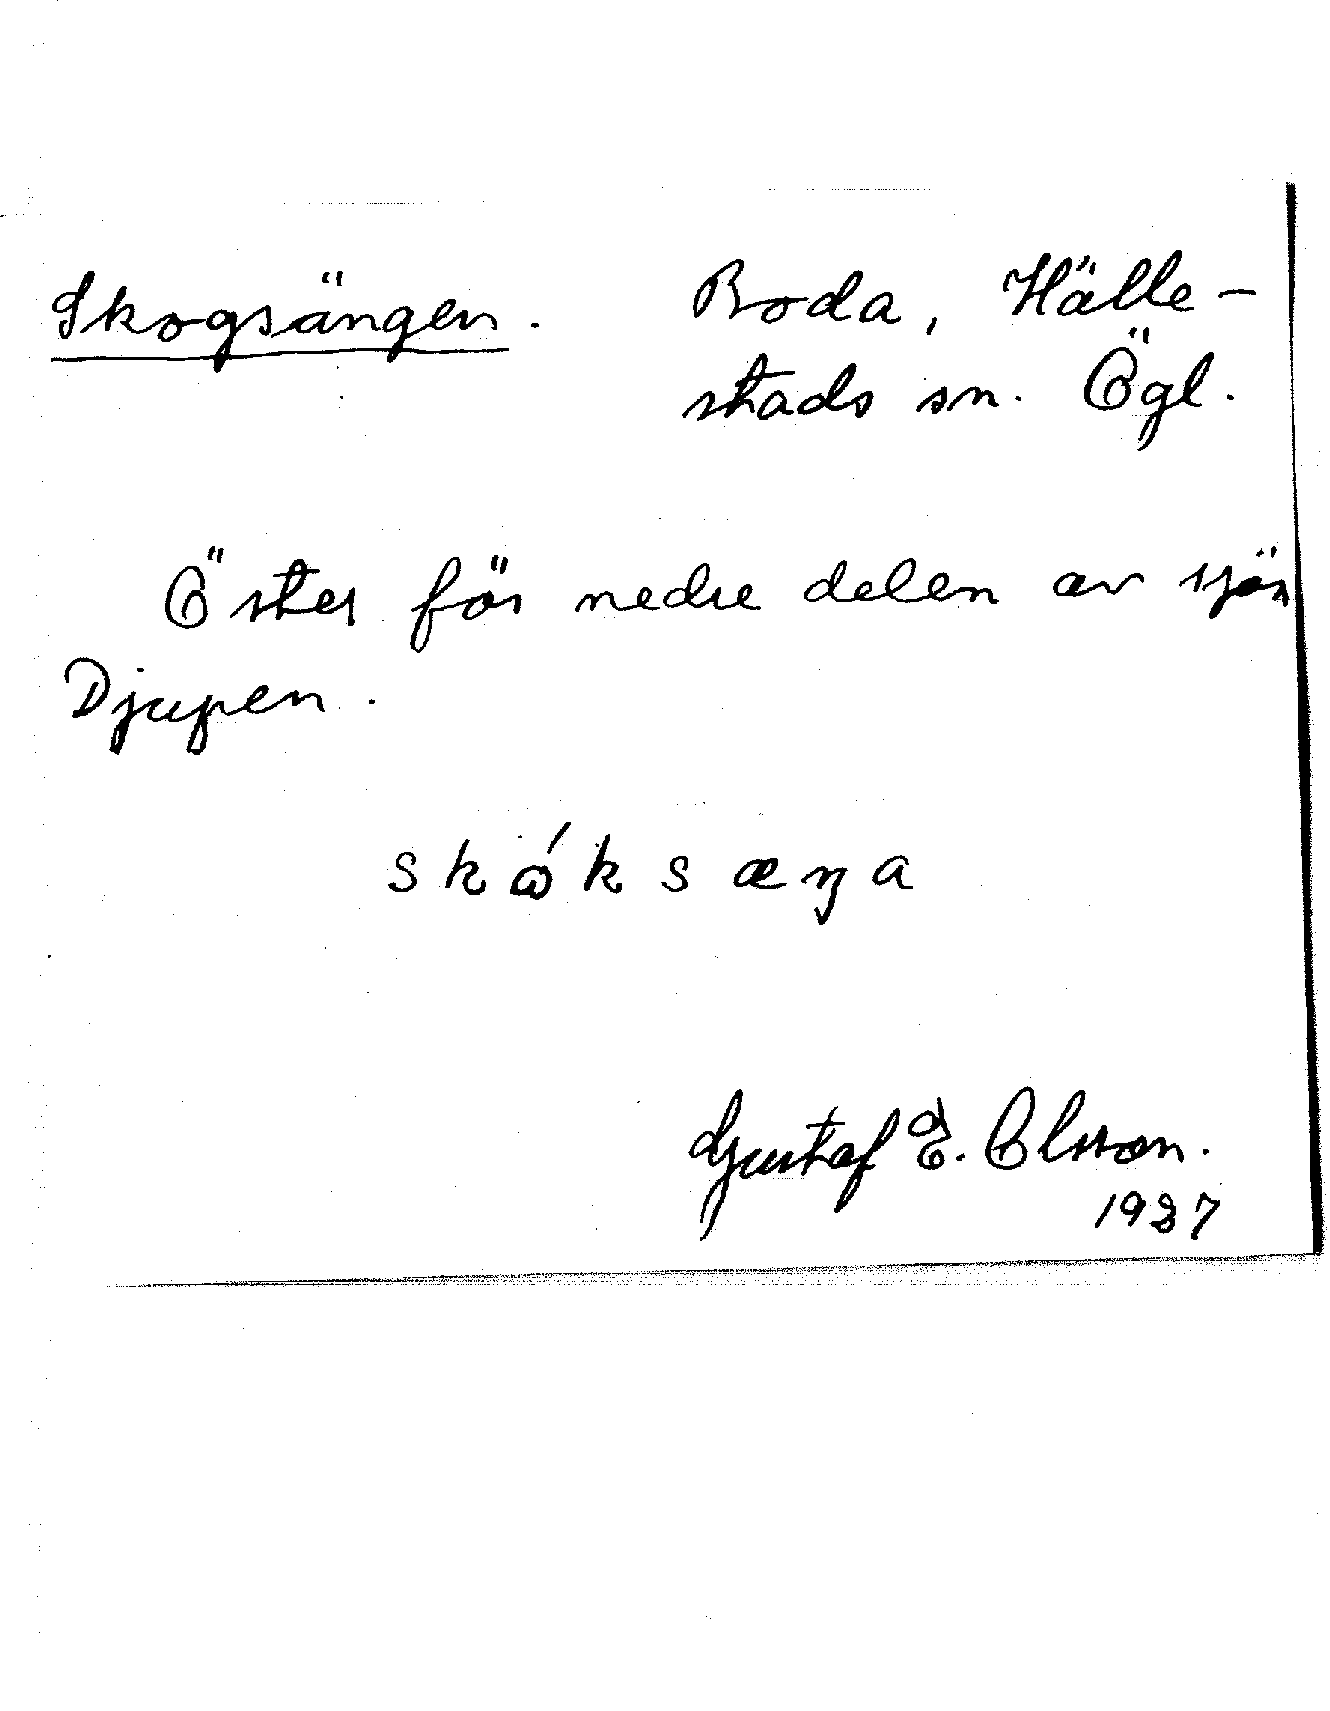 Skogsängen. Boda, Hälle-
stads sn. Ögl.
Öster för nedre delen av sjön
Djupen.
skɷ́ksæŋa
Gustaf E. Olsson.
1937